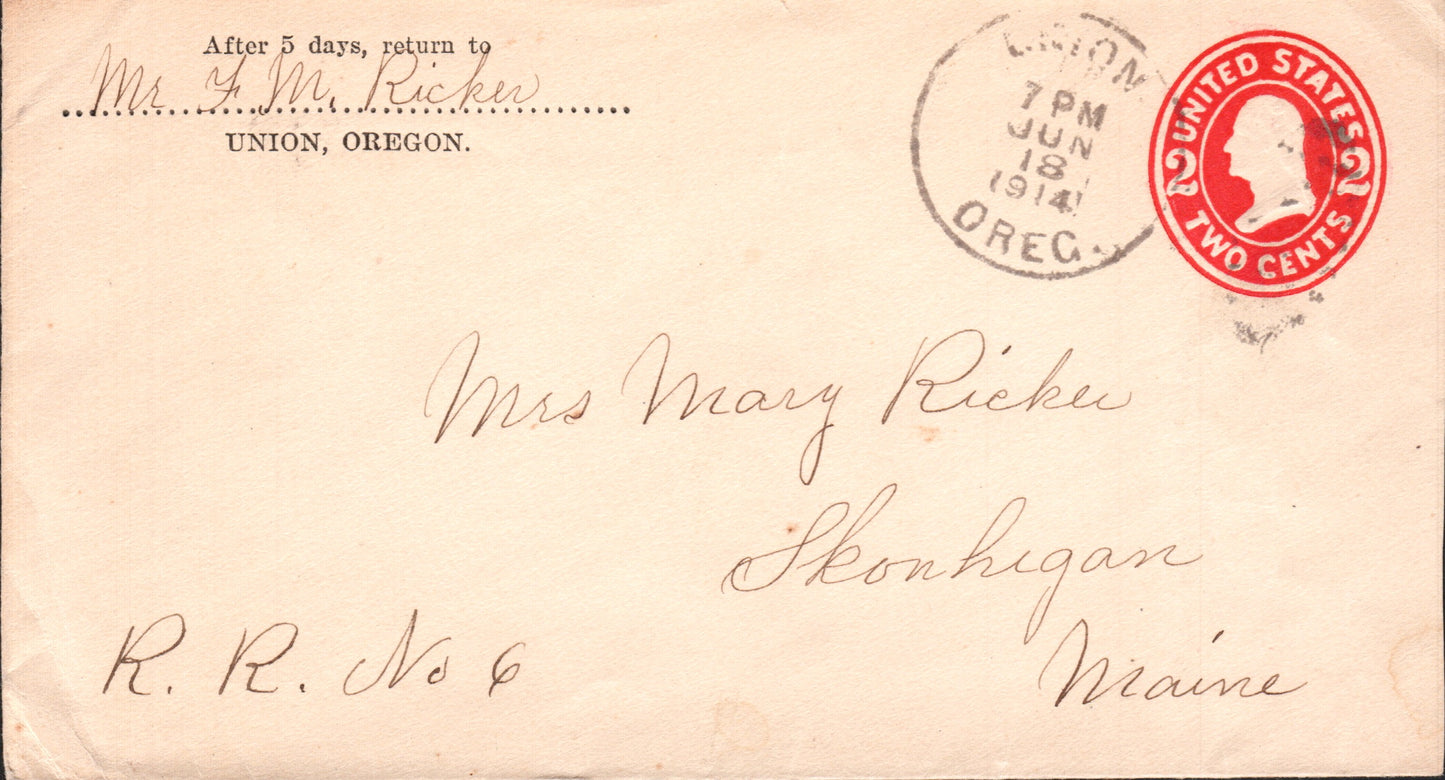 After 5 days, return to
Mr F. M. Ricker
UNION, OREGON.
UNION
7 PM
JUN
18
1914
OREG.
UNITED STATES
2 2
TWO CENTS
Mrs Mary Ricker
Skonhegan
Maine
R. R. No 6